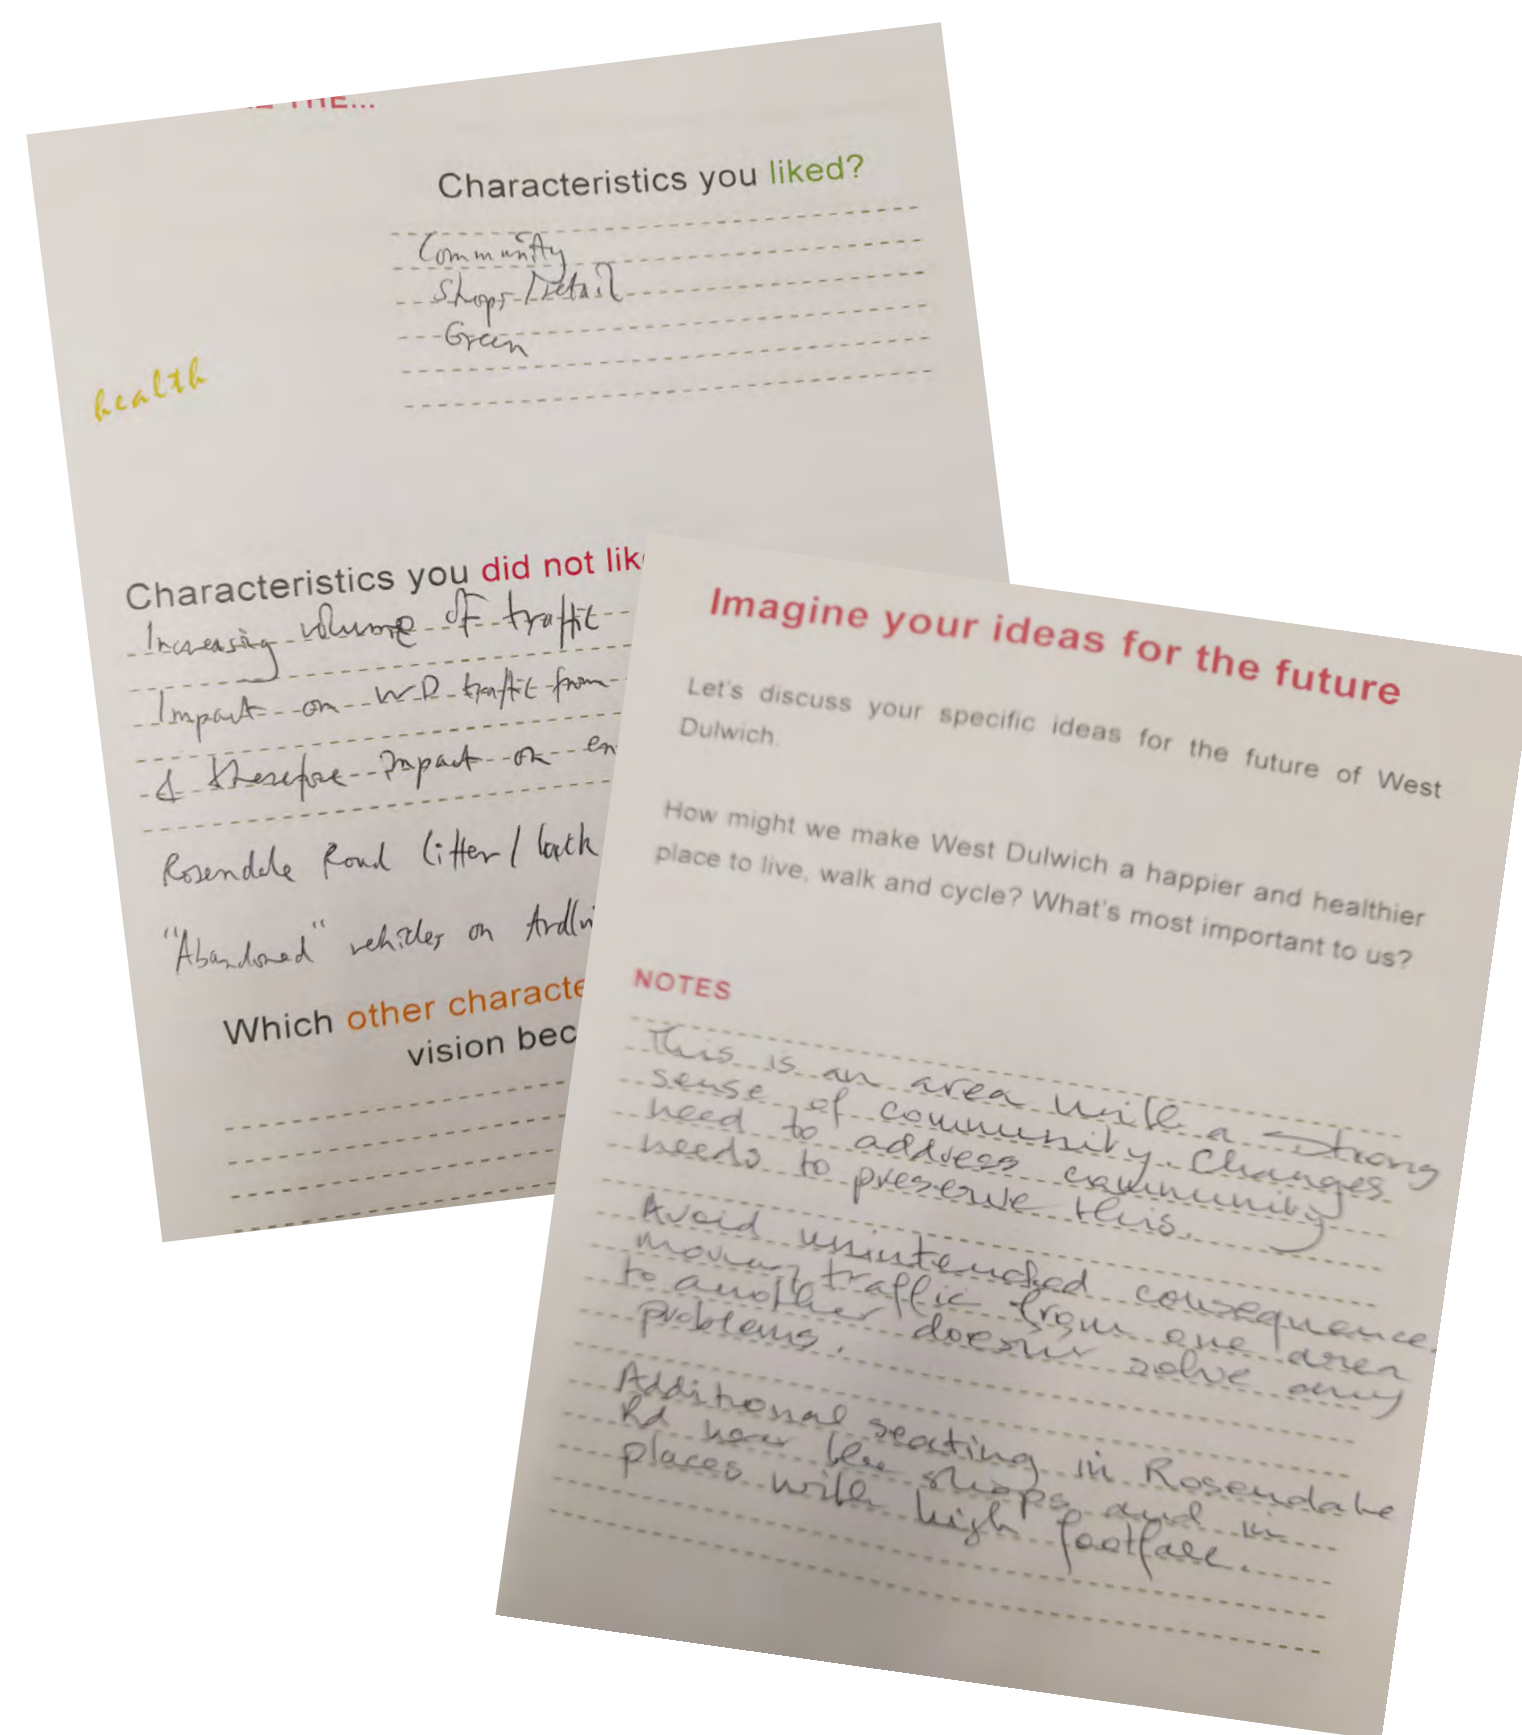 THE...
Characteristics you liked?
Community
Shops/retail
Green
health
Characteristics you did not lik
Increasing volume of traffic
Impact on WD traffic from
& therefore impact on en
Rosendale Road litter/lack
"Abandoned" vehicles on
Which other characte
vision bec
Imagine your ideas for the future
Let's discuss your specific ideas for the future of West
Dulwich.
How might we make West Dulwich a happier and healthier
place to live, walk and cycle? What's most important to us?
NOTES
This is an area with a strong
sense of community. Changes
need to address community
needs to preserve this.
Avoid unintended consequence.
Moving traffic from one area
to another doesn't solve any
problems.
Additional seating in Rosendale
Rd near the shops and in
places with high footfall.